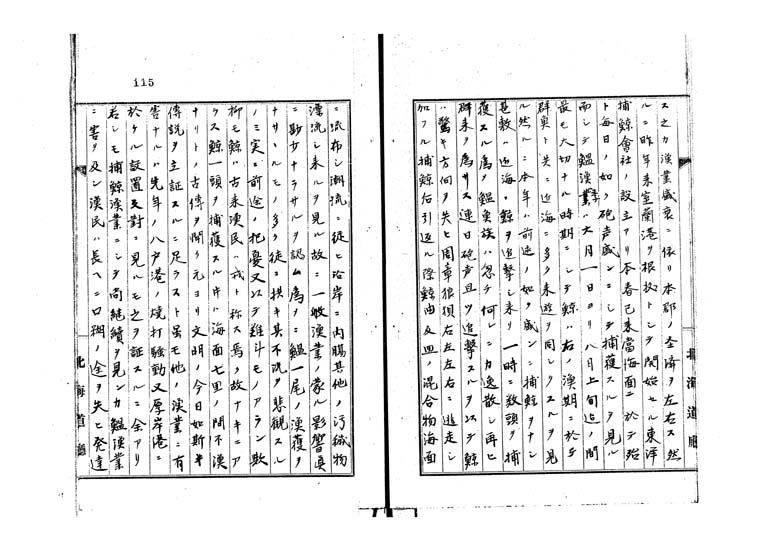 ス之カ漁業盛衰ニ依リ本郡ノ経済ヲ左右ス然
ルニ昨年来室蘭港ヲ根拠トシテ開始セル東洋
捕鯨會社ノ設立アリ本春已来當海面ニ於テ殆
ト毎日ノ如ク砲声盛ンニシテ捕獲スルヲ見ル
而シテ鰮漁業ハ六月一日ヨリ八月上旬迄ノ間
最モ大切ナル時期ニシテ鯨ハ右ノ漁期ニ於テ
群奥ト共ニ近海ニ多ク来遊ヲ同シクスルヲ見
ル然ルニ本年ハ前述ノ如ク盛ンニ捕鯨ヲナシ
是数ハ近海ニ鯨ヲ追撃シ来リ一時ニ数頭ヲ捕
獲スル為メ鰮魚族ハ忽チ何レニカ逸散シ再ヒ
群来ヲ為サス連日砲声且ツ追撃スルヲ以テ鯨
ハ驚キ方向ヲ失ヒ周章狼狽右左左右ニ逃走シ
加フル捕鯨船引廻ル際鯨曲及血ノ混合物海面
ニ流布シ潮流ニ従ヒ沿岸ニ内腸其他ノ汚穢物
漂流シ来ルヲ見ル故ニ一般漁業ノ蒙ル影響真
ニ尠カナラサルヲ認ム為メニ鰮一尾ノ漁獲ヲ
ナサヽルモノ多ク徒ニ拱キ其不漁ヲ悲観スル
ノミ実ニ前途ノ杞憂又以テ難斗モノアラン歟
抑モ鯨ハ古来漁民ハ戎ト称ス焉ノ故ナキニア
ラス鯨一頭ヲ捕獲スル片ハ海面七里ノ間不漁
ナリトノ古傳ヲ聞ク元ヨリ文明ノ今日如斯キ
傳説ヲ主証スルニ足ラスト虽モ他ノ漁業ニ有
害ナルハ先年ノ八戸港ノ焼打騒動又厚岸港ニ
於ケル設置反對ニ見ルモ之ヲ証スルニ余アリ
若シモ捕鯨漁業ニシテ尚継続ヲ見ンカ鰮漁業
ニ害ヲ及シ漁民ハ長ヘニ口糊ノ途ヲ失ヒ発達
北海道廳
北海道廳
115